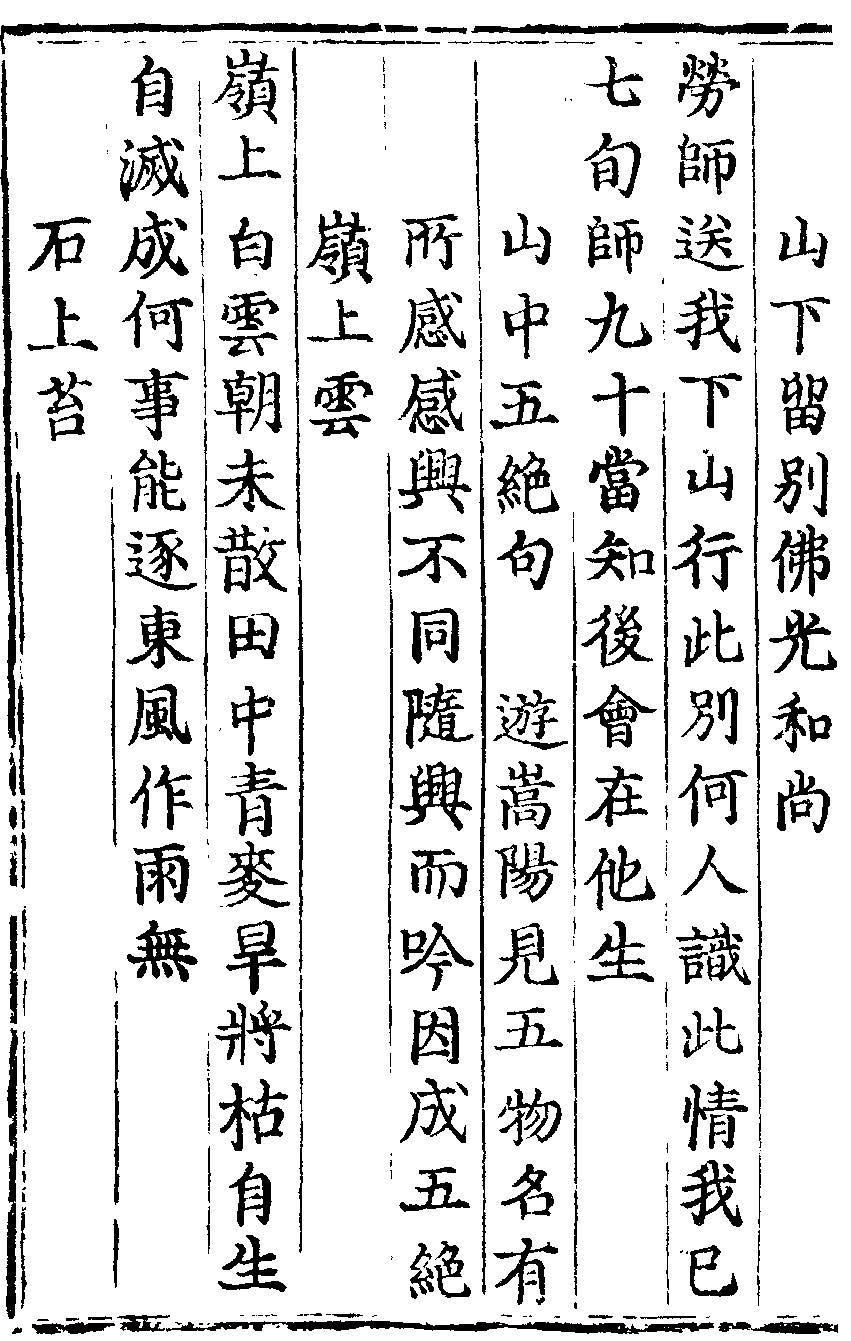 山下留别佛光和尚
勞師送我下山行此别何人識此情我已
七旬師九十當知後會在他生
山中五絶句　遊嵩陽見五物名有
所感感興不同隨興而吟因成五絶
嶺上雲
嶺上白雲朝未散田中青麥旱將枯自生
自滅成何事能逐東風作雨無
石上苔